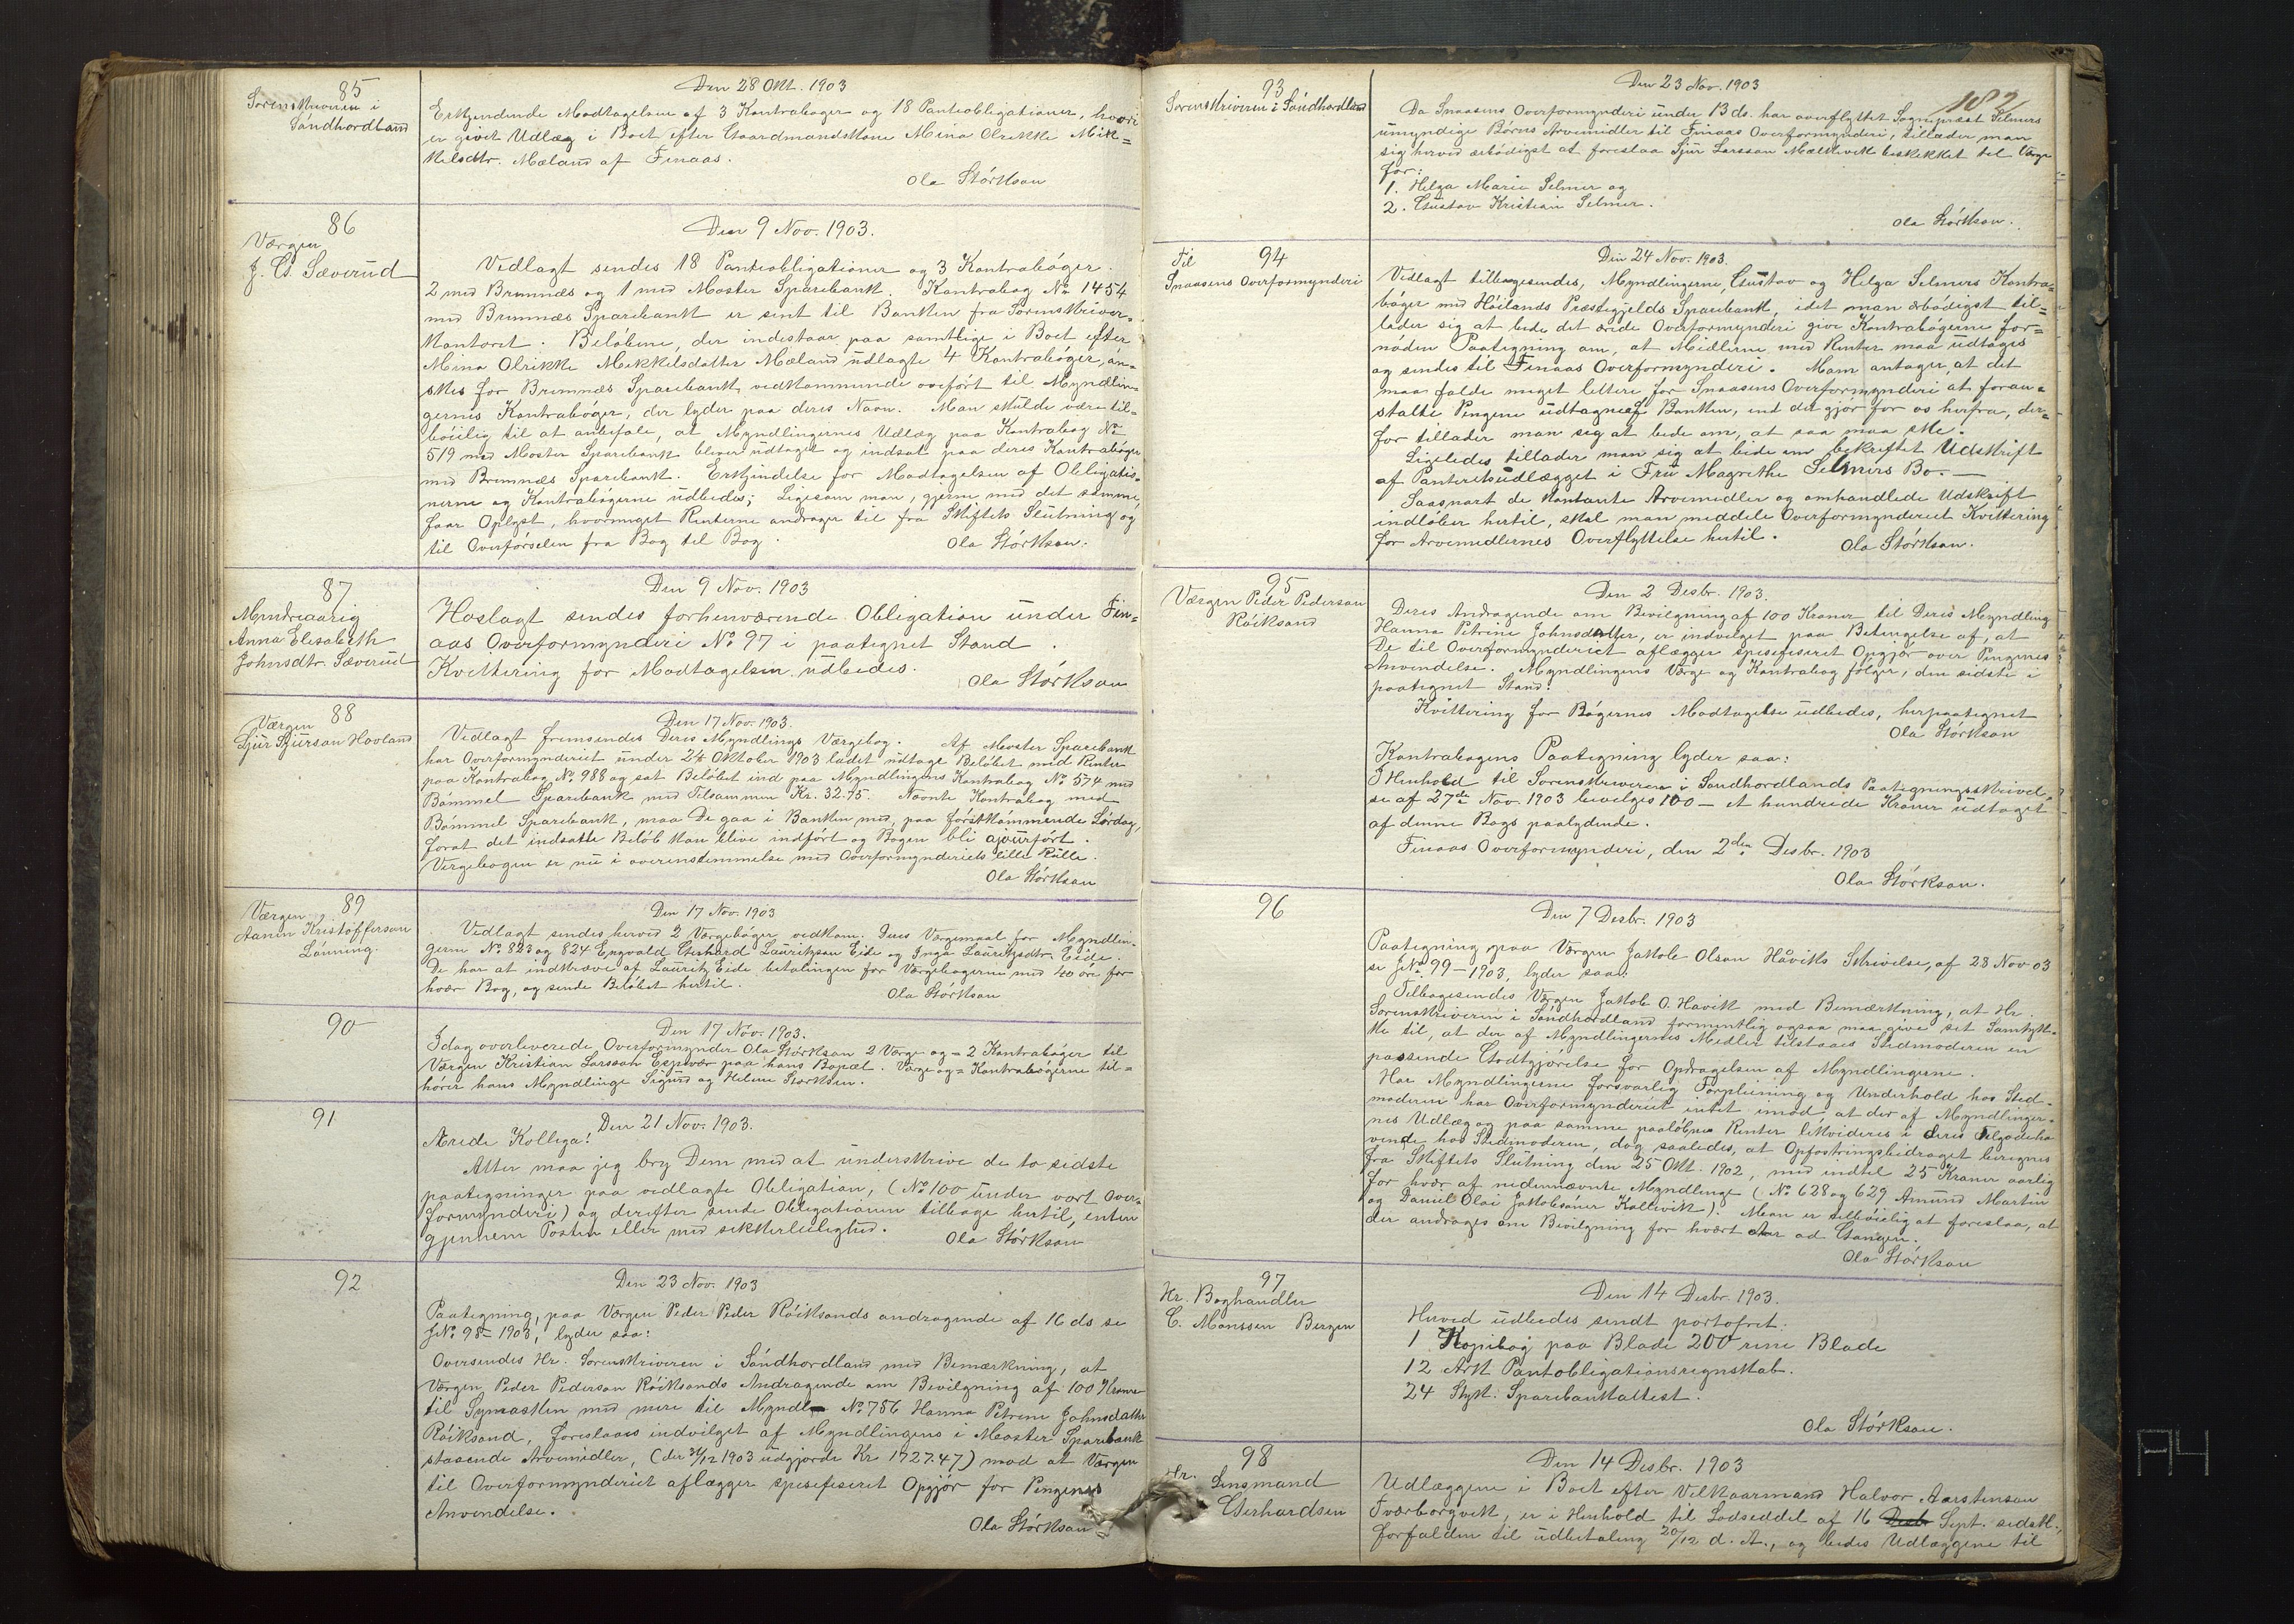 85
Sorenskriveren i
Søndhordland
Den 28 Okt. 1903
Erkjendende Modtagelsen af 3 Kontrabøger og 18 Panteobligationer, hvori
er givet Udlæg i Boet efter Gaardmandskone Mina Olrikke Mik=
kelsdtr. Mæland af Finaas.
Ola Størkson
86
Værgen
J. G. Sæverud
Den 9 Nov. 1903.
Vedlagt sendes 18 Panteobligationer og 3 Kontrabøger.
2 med Bremnæs og 1 med Moster Sparebank. Kontrabog No 1454
med Bremnæs Sparebank er sent til Banken fra Sorenskriver-
kontoret. Beløbene, der indestaar paa samtlige i Boet efter
Mina Olrikke Mekkelsdatter Mæland udlagte 4 Kontrabøger, øn-
skes for Bremnæs Sparebank vedkommende overført til Myndlin-
gernes Kontrabøger, der lyder paa deres Navn. Man skulde være til-
bøielig til at anbefale, at Myndlingernes Udlæg paa Kontrabog No
519 med Moster Sparebank bliver udtaget og indsat paa deres Kontrabøger
med Bremnæs Sparebank. Erkjendelse for Modtagelsen af Obligatio-
nerne og Kontrabøgerne udbedes; Ligesom man, gjerne med det samme,
faar Oplyst, hvormeget Renterne andrager til fra Skiftets Slutning og
til Overførselen fra Bog til Bog.
Ola Størkson.
87
Myndreaarig
Anna Elisabeth
Johnsdtr. Sæverud
Den 9 Nov. 1903
Hoslagt sendes forhenværende Obligation under Fin-
aas Overformynderi No 97 i paategnet Stand.
Kvittering for Modtagelsen udbedes.
Ola Størkson
88
Værgen
Sjur Sjurson Hovland
Den 17 Nov. 1903.
Vedlagt fremsendes Deres Myndlings Værgebog. Af Moster Sparebank
har Overformynderiet under 24 Oktober 1903 ladet udtage Beløbet med Renter
paa Kontrabog No 988 og sat Beløbet ind paa Myndlingens Kontrabog No 574 med
Bømmel Sparebank med Tilsammen Kr. 32.75. Nævnte Kontrabog med
Bømmel Sparebank, maa De gaa i Banken med, paa førstkommende Lørdag,
forat det indsatte Beløb kan blive indført og Bogen bli ajourført.
Værgebogen er nu i overenstemmelse med Overformynderiets lille Rulle.
Ola Størkson
89
Værgen
Aanen Kristofferson
Lønning
Den 17 Nov. 1903
Vedlagt sendes herved 2 Værgebøger vedkom. Jues Værgemaal for Myndlin-
gerne No 823 og 824 Engvald Gerhard Lauritzson Eide og Inga Lauritzsdtr. Eide.
De har at indkræve af Lauritz Eide betalingen for Værgebøgerne med 40 øre for
hver Bog, og sende Beløbet hertil.
Ola Størkson
90
Den 17 Nov. 1903.
Idag overleverede Overformynder Ola Størkson 2 Værge og = 2 Kontrabøger til
Værgen Kristian Larsson Espevær paa hans Bopæl. Værge og = Kontrabøgerne til=
hører hans Myndlinge Sigurd og Helene Størksen.
91
Den 21 Nov. 1903.
Ærede Kollega!
Atter maa jeg bry Dem med at underskrive de to sidste
paategninger paa vedlagte Obligation, (No 100 under vort Over-
formynderi) og derefter sende Obligationen tilbage hertil, enten
gjennem Posten eller med sikkerleilighed.
Ola Størkson
92
Den 23 Nov. 1903
Paategning, paa Værgen Peder Peder Røiksands andragende af 16 ds se
J No 98 - 1903, lyder saa:
Oversendes Hr. Sorenskriveren i Søndhordland med Bemærkning, at
Værgen Peder Pederson Røiksands Andragende om Bevilgning af 100 Kroner
til Symaskin med mere til Myndl No 756 Hanna Petrine Johnsdatter
Røiksand, foreslaaes indvilget af Myndlingens i Moster Sparebank
staaende Arvemidler, (der 31/12 1903 udgjorde Kr 1727.47) mod at Værgen
til Overformynderiet aflægger spesifiseret Opgjør for Pengenes
Anvendelse.
Ola Størkson
182
93
Sorenskriveren i Søndhordland
Den 23 Nov. 1903
Da Snaasens Overformynderi under 13 ds. har overflyttet Sogneprest Selmers
umyndige Børns Arvemidler til Finaas Overformynderi, tillader man
sig herved ærbødigst at foreslaa Sjur Larsson Mælkevik beskikket til Værge
for:
1. Helga Marie Selmer og
2. Gustav Kristian Selmer.
Ola Størkson.
94
Til
Snaasens Overformynderi
Den 24 Nov. 1903.
Vedlagt tilbagesendes, Myndlingerne, Gustav og Helga Selmers Kontra=
bøger med Høilands Præstegjelds Sparebank, idet man ærbødigst til=
lader sig at bede det ærede Overformynderi give Kontrabøgerne for=
nøden Paategning om, at Midlerne med Renter maa udtages
og sendes til Finaas Overformynderi. Mam antager, at det
maa falde meget lettere for Snaasens Overformynderi at foran=
stalte Pengene udtagne af Banken, end det gjør for os herfra, der=
for tillader man sig at bede om, at saa maa ske.
Ligeledes tillader man sig at bede om bekræftet Udskrift
af Panteretsudlægget i Fru Magrethe Selmers Bo. —
Saasnart de kontante Arvemidler og omhandlede Udskrift
indløber hertil, skal man meddele Overformynderiet Kvittering
for Arvemidlernes Overflyttelse hertil.
Ola Størkson.
95
Værgen Peder Pederson
Røiksand
Den 2 Desbr. 1903.
Deres Andragende om Bevilgning af 100 Kroner til Deres Myndling
Hanna Petrine Johnsdatter, er indvilget paa Betingelse af, at
De til Overformynderiet aflægger spesifiseret Opgjør over Pengenes
Anvendelse. Myndlingens Værge og Kontrabog følger, den sidste i
paategnet Stand.
Kvittering for Bøgernes Modtagelse udbedes, herpaategnet
Ola Størkson
Kontrabogens Paategning lyder saa:
I Henhold til Sorenskriveren i Søndhordlands Paategningsskrivel-
se af 27de Nov. 1903 bevilges 100 — et hundrede Kroner udtaget
af denne Bogs paalydende.
Finaas Overformynderi, den 2den Desbr. 1903
Ola Størkson.
96
Den 7 Desbr. 1903
Paategning paa Værgen Jakob Olson Håviks Skrivelse, af 28 Nov 03
se J No 99 - 1903, lyder saa:
Tilbagesendes Værgen Jakob O. Havik med Bemærkning, at Hr.
Sorenskriveren i Søndhordland formentlig ogsaa maa give set Samtyk-
ke til, at der af Myndlingernes Midler tilstaaes Stedmoderen en
passende Godtgjørelse for Opdragelsen af Myndlingerne.
Har Myndlingerne forsvarlig Forpleining og Underhold hos Sted-
moderen har Overformynderiet intet imod, at der af Myndlinger-
nes Udlæg og paa samme paaløbne Renter likvideres i deres Tilgodeha-
vende hos Stedmoderen, dog saaledes, at Opfostringsbidraget beregnes
fra Skiftets Slutning den 25 Okt. 1902, med indtil 25 Kroner aarlig
for hver af nedennævnte Myndlinge (No 628 og 629 Amund Martin
og Daniel Olai Jakobsøner Kallevik). Man er tilbøielig at foreslaa, at
der andrages om Bevilgning for hvert Aar ad Gangen.
Ola Størkson
97
Hr. Boghandler
C. Monssen Bergen
Den 14 Desbr. 1903.
Herved udbedes sendt portofrit:
1 Kopibog paa Blade 200 rene Blade
12 Ark Pantobligationsregnskab.
24 Styk. Sparebankattest.
Ola Størkson.
98
Hr.
Lensmand
Gerhardsen
Den 14 Desbr. 1903
Udlæggene i Boet efter Vilkaarmand Halvor Aarstenson
Tværborgvik, er i Henhold til Lodseddel af 16 Desbr Sept. sidstl.,
forfalden til udbetaling 20/12 d. A., og bedes Udlæggene til